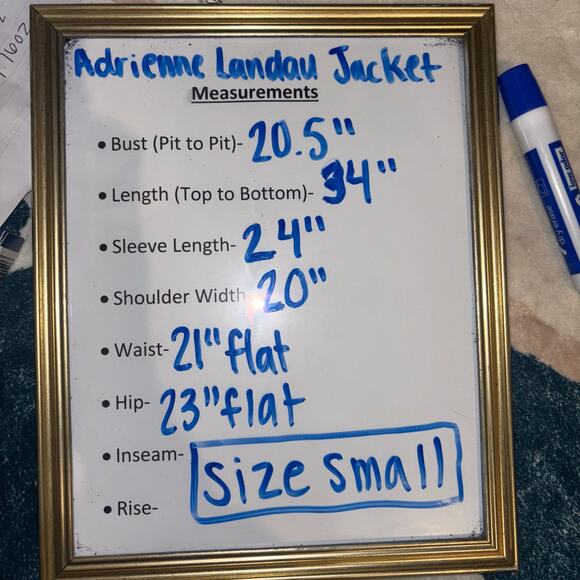 Adrienne Landau Jacket
Measurements
• Bust (Pit to Pit)- 20.5"
• Length (Top to Bottom)- 34"
• Sleeve Length- 24"
• Shoulder Width 20"
• Waist- 21" flat
• Hip- 23" flat
• Inseam-
size small
• Rise-
dry erase